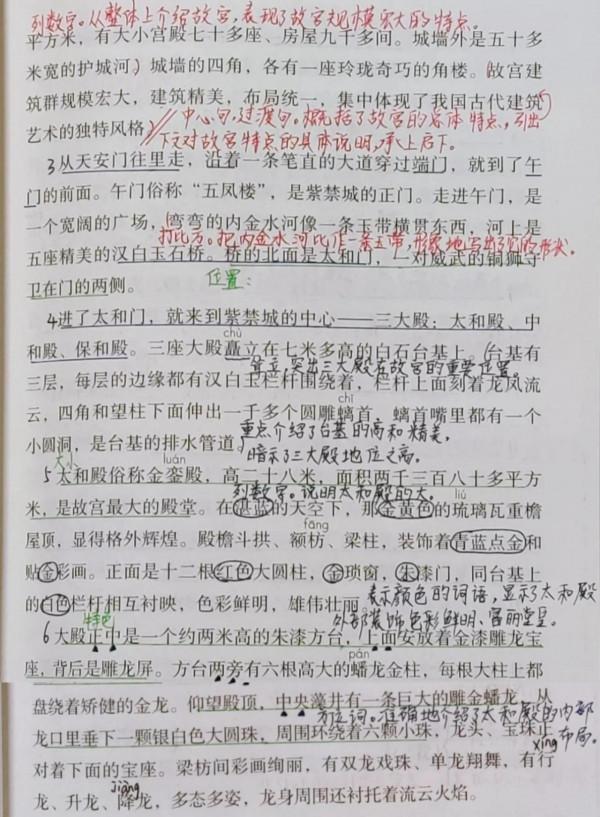 列数字。从整体上介绍故宫,表现了故宫规模宏大的特点。
平方米,有大小宫殿七十多座、房屋九千多间。城墙外是五十多
米宽的护城河。城墙的四角,各有一座玲珑奇巧的角楼。故宫建
筑群规模宏大,建筑精美,布局统一,集中体现了我国古代建筑
艺术的独特风格。
中心句,过渡句。概括了故宫的总体特点,引出
下文对故宫特点的具体说明,承上启下。
3从天安门往里走,沿着一条笔直的大道穿过端门,就到了午
门的前面。午门俗称“五凤楼”,是紫禁城的正门。走进午门,是
一个宽阔的广场,弯弯的内金水河像一条玉带横贯东西,河上是
打比方。把内金水河比作一条玉带,形象地写出了它的形状。
五座精美的汉白玉石桥。桥的北面是太和门,一对威武的铜狮守
卫在门的两侧。
位置:
4进了太和门,就来到紫禁城的中心——三大殿:太和殿、中
chù
和殿、保和殿。三座大殿矗立在七米多高的白石台基上。台基有
直立,突出三大殿在故宫的重要位置。
三层,每层的边缘都有汉白玉栏杆围绕着,栏杆上面刻着龙凤流
chī
云,四角和望柱下面伸出一千多个圆雕螭首,螭首嘴里都有一个
小圆洞,是台基的排水管道。
重点介绍了台基的高和精美,
暗示了三大殿地位之高。
大小 luán
5太和殿俗称金銮殿,高二十八米,面积两千三百八十多平方
列数字。说明太和殿的大。 liú
米,是故宫最大的殿堂。在湛蓝的天空下,那金黄色的琉璃瓦重檐
fāng
屋顶,显得格外辉煌。殿檐斗拱、额枋、梁柱,装饰着青蓝点金和
贴金彩画。正面是十二根红色大圆柱,金琐窗,朱漆门,同台基上
的白色栏杆相互衬映,色彩鲜明,雄伟壮丽。
表示颜色的词语,显示了太和殿
外部装饰色彩鲜明、富丽堂皇。
特色
6大殿正中是一个约两米高的朱漆方台,上面安放着金漆雕龙宝
pán
座,背后是雕龙屏。方台两旁有六根高大的蟠龙金柱,每根大柱上都
盘绕着矫健的金龙。仰望殿顶,中央藻井有一条巨大的雕金蟠龙。从
方位词。准确地介绍了太和殿的内部
布局。
龙口里垂下一颗银白色大圆珠,周围环绕着六颗小珠,龙头、宝珠正
xíng
对着下面的宝座。梁枋间彩画绚丽,有双龙戏珠、单龙翔舞,有行
jiàng
龙、升龙、降龙,多态多姿,龙身周围还衬托着流云火焰。